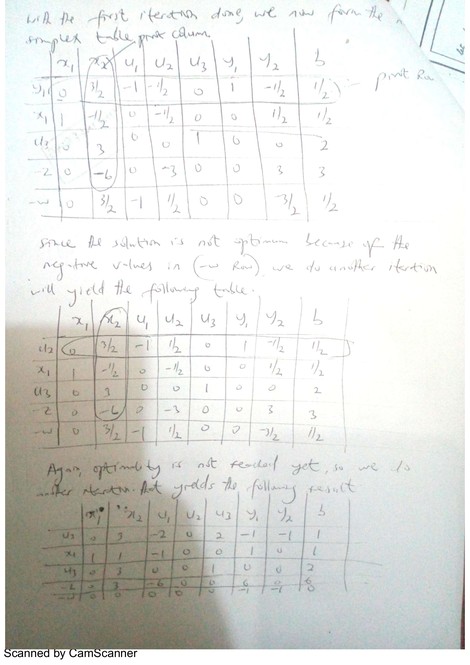 with the first iteration done, we now form the n
simplex table pivot column.
x₁ x₂ u₁ u₂ u₃ y₁ y₂ b
y₁ 0 3/2 -1 -1/2 0 1 -1/2 1/2 pivot Row
x₁ 1 -1/2 0 -1/2 0 0 1/2 1/2
u₃ 3 0 0 1 0 0 2
-z 0 -6 0 -3 0 0 3 3
-w 0 3/2 -1 1/2 0 0 -3/2 1/2
Since the solution is not optimum because of the
negative values in (-w Row) we do another iteration
will yield the following table.
x₁ x₂ u₁ u₂ u₃ y₁ y₂ b
u₂ 0 3/2 -1 1/2 0 1 -1/2 1/2
x₁ 1 -1/2 0 -1/2 0 0 1/2 1/2
u₃ 0 3 0 0 1 0 0 2
-z 0 -6 0 -3 0 0 3 3
-w 0 3/2 -1 1/2 0 0 -3/2 1/2
Again, optimality is not reached yet, so we do
another iteration that yields the following result
x₁ x₂ u₁ u₂ u₃ y₁ y₂ b
u₂ 0 3 -2 0 2 -1 -1 1
x₁ 1 1 -1 0 0 1 0 1
u₃ 0 3 0 0 1 0 0 2
-z 0 3 -6 0 0 6 0 6
-w 0 0 0 0 0 -1 -1 0
Scanned by CamScanner